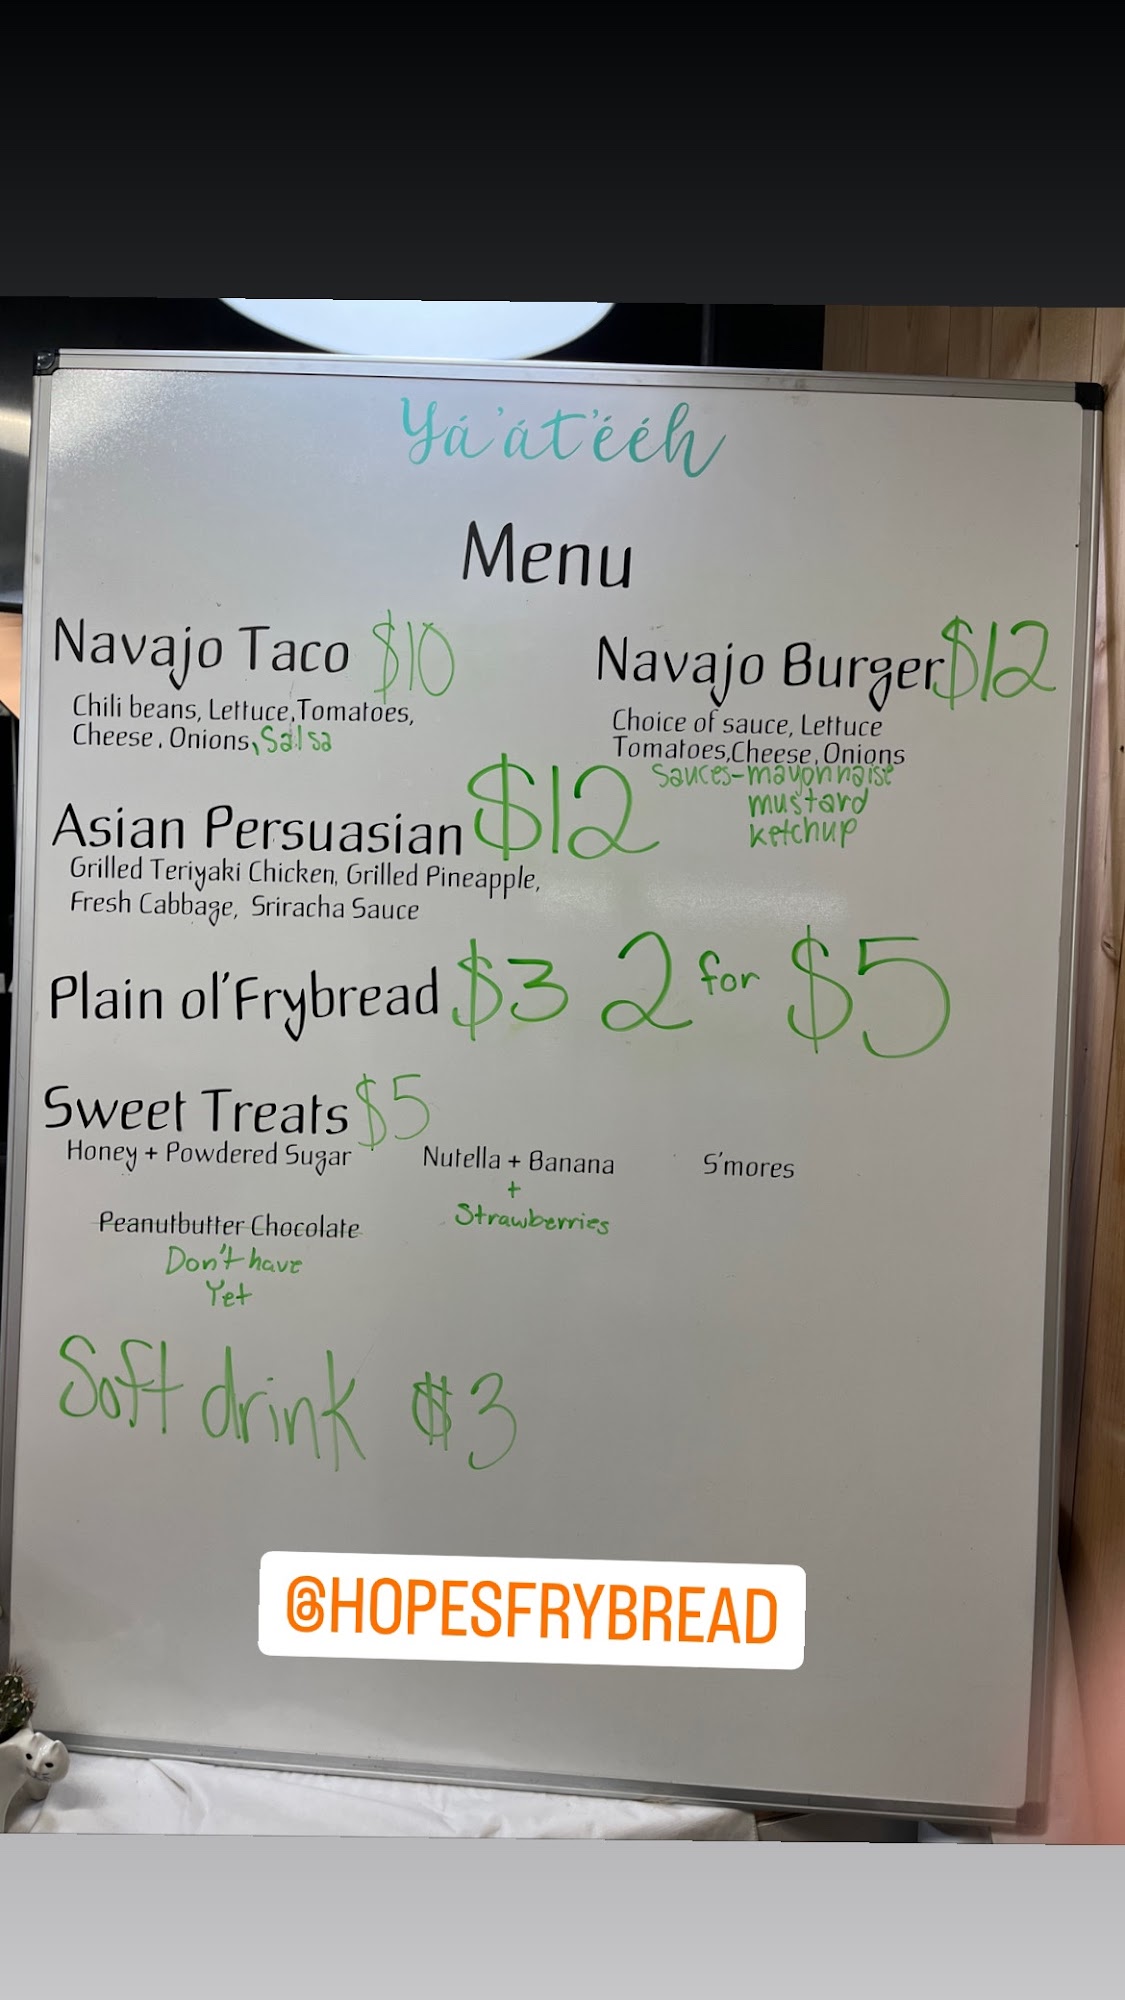 Yá'át'ééh
Menu
Navajo Taco $10
Chili beans, Lettuce, Tomatoes,
Cheese, Onions, Salsa
Navajo Burger $12
Choice of sauce, Lettuce
Tomatoes, Cheese, Onions
Sauces-mayonnaise
mustard
ketchup
Asian Persuasian $12
Grilled Teriyaki Chicken, Grilled Pineapple,
Fresh Cabbage, Sriracha Sauce
Plain ol' Frybread $3 2 for $5
Sweet Treats $5
Honey + Powdered Sugar
Nutella + Banana
+
Strawberries
S'mores
Peanutbutter Chocolate
Don't have
Yet
Soft drink $3
@HOPESFRYBREAD